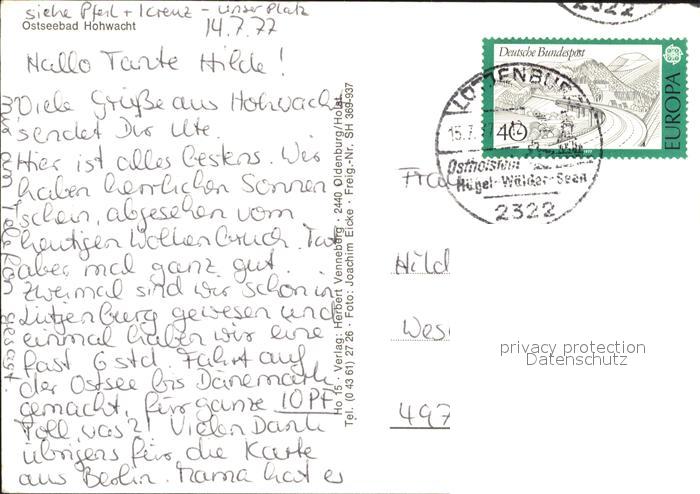 siehe Pfeil + Kreuz - unser Platz
Ostseebad Hohwacht
14.7.77
Hallo Tante Hilde!
Viele Grüße aus Hohwacht
sendet Dir Ute.
Hier ist alles bestens. Wir
haben herrlichen Sonnen
schein, abgesehen vom
heutigen Wolkenbruch. Tut
aber mal ganz gut.
Zweimal sind wir schon in
Lütjenburg gewesen und
einmal haben wir eine
fast 6 std. Fahrt auf
der Ostsee bis Dänemark
gemacht, für ganze 10 PF.
Toll, was?! Vielen Dank
übrigens für die Karte
aus Berlin. Mama hat es
am Telefon gesagt.
Ho 15 · Verlag: Herbert Venneberg · 2440 Oldenburg/Holst.
Tel. (0 43 61) 27 26 · Foto: Joachim Eicke · Freig.-Nr. SH 369-937
2322
Deutsche Bundespost
EUROPA
40
LÜTJENBURG
15.7.
Ostholstein
Hügel-Wälder-Seen
2322
Hild
Wes
497
privacy protection
Datenschutz